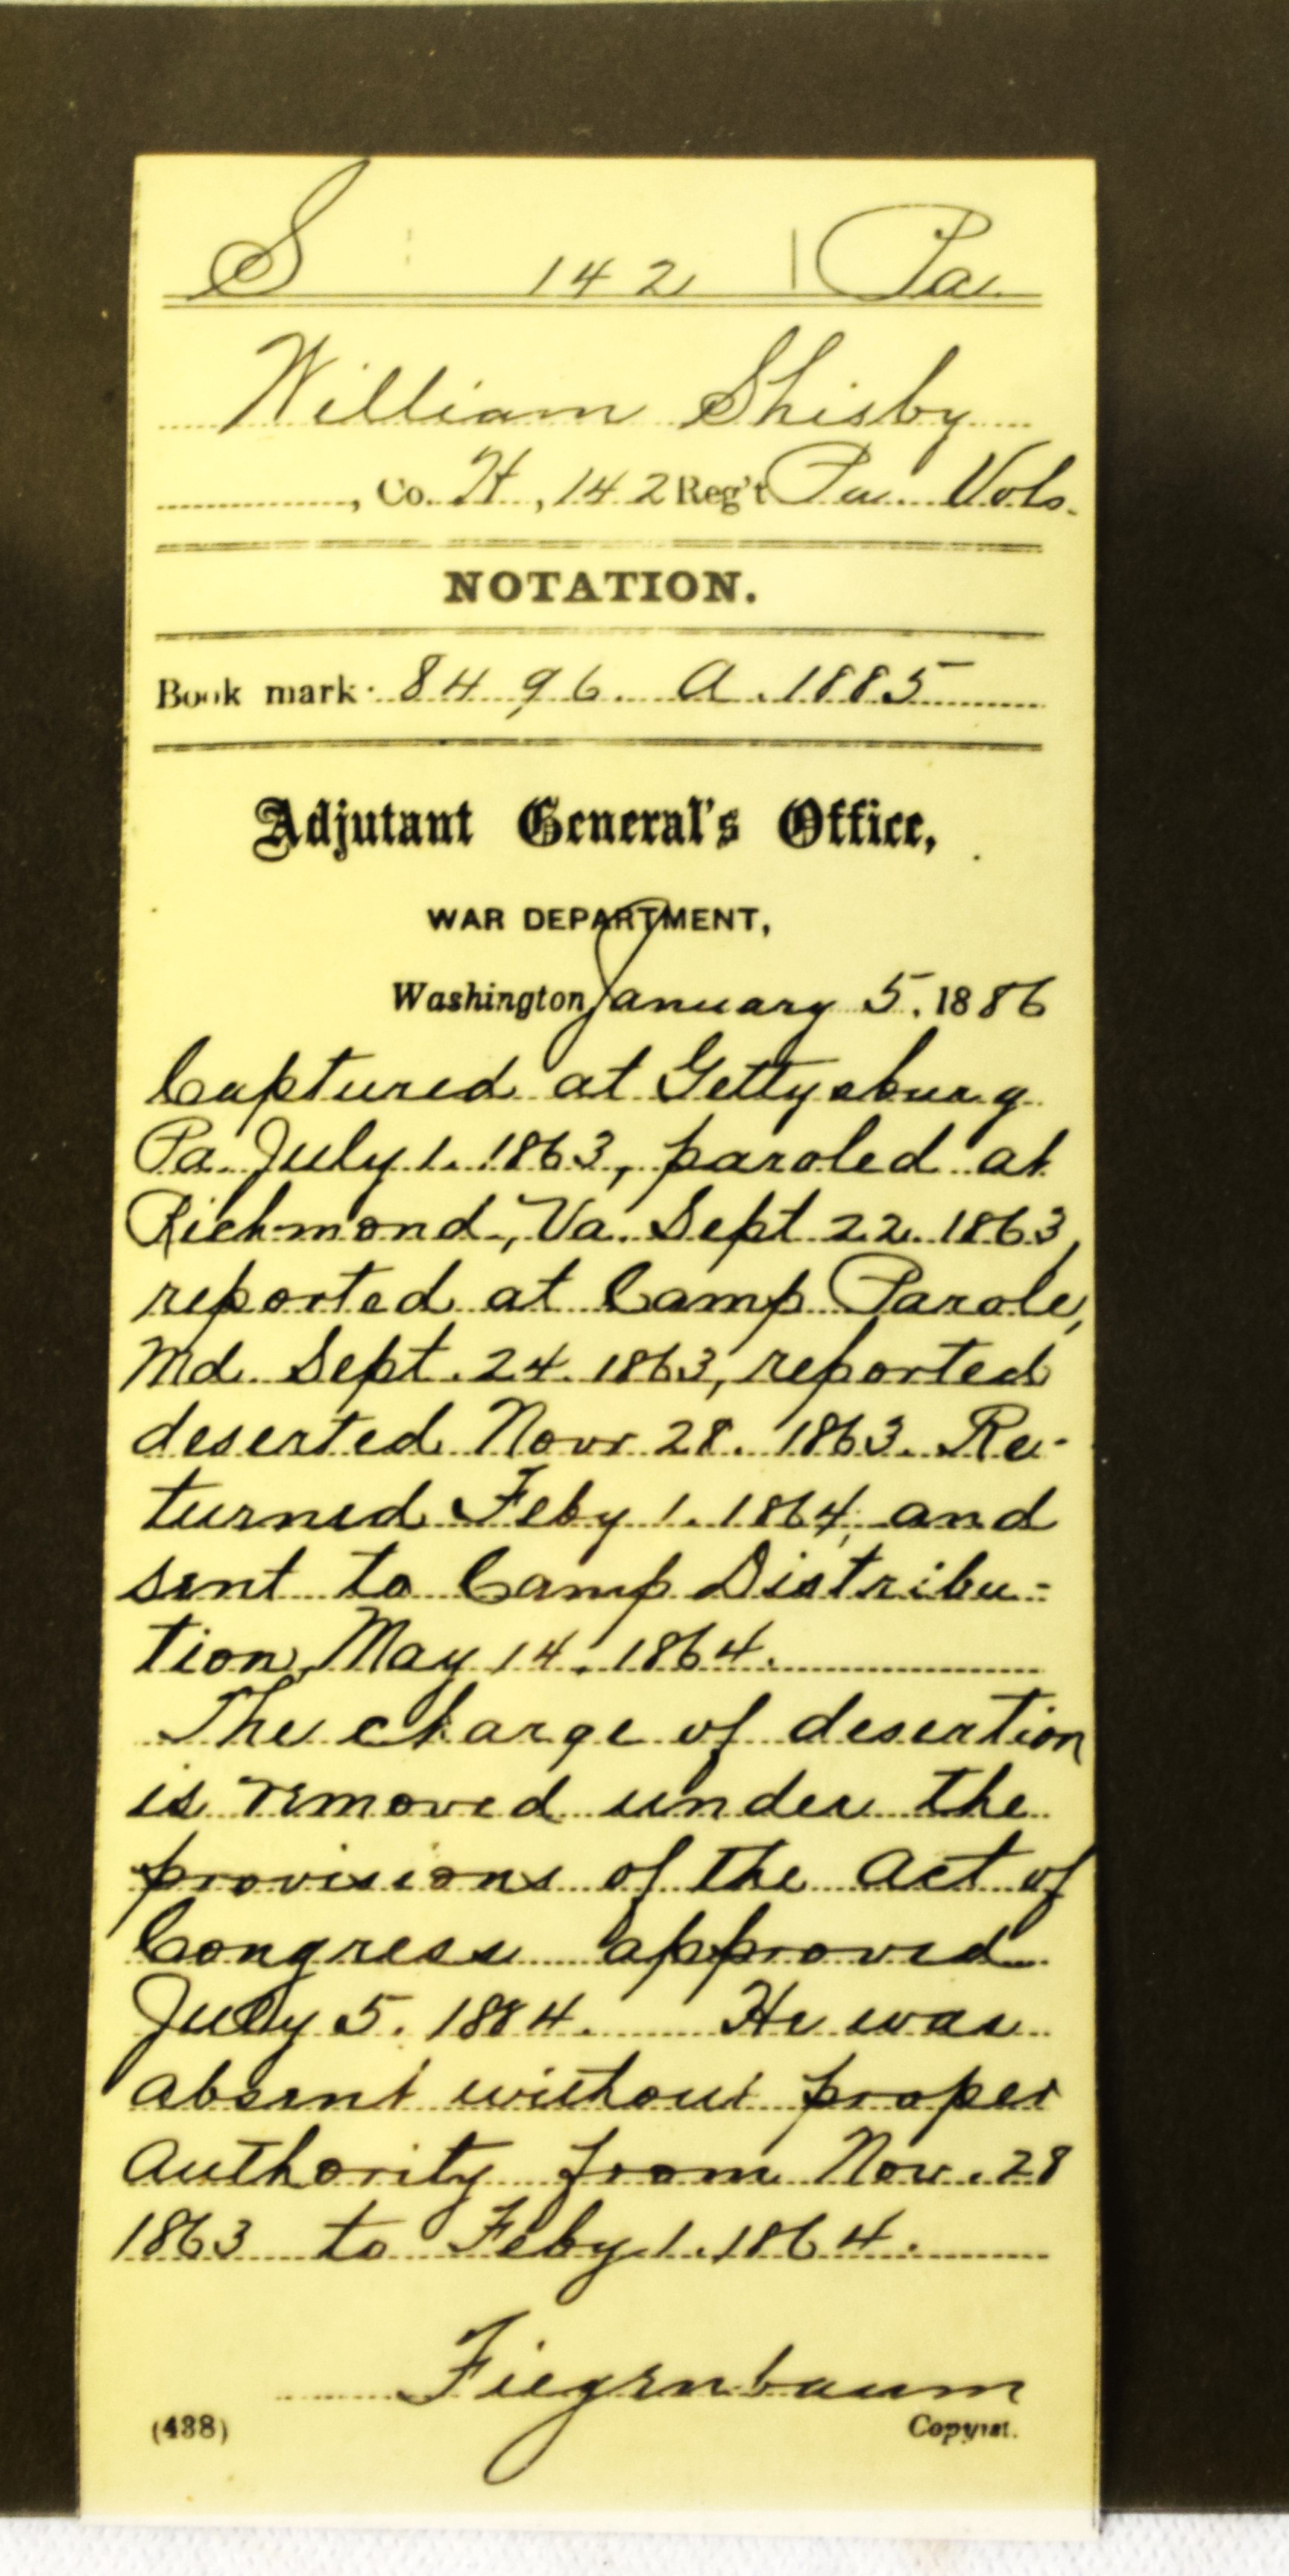 S 142 Pa.
William Shisby
, Co. H, 142 Reg't Pa. Vols.
NOTATION.
Book mark: 8496. A. 1885
Adjutant General's Office,
WAR DEPARTMENT,
Washington, January 5, 1886
Captured at Gettysburg
Pa. July 1. 1863, paroled at
Richmond, Va. Sept 22. 1863,
reported at Camp Parole,
Md. Sept. 24. 1863, reported
deserted Novr 28. 1863. Re-
turned Feby 1. 1864, and
sent to Camp Distribu-
tion, May 14. 1864.
The charge of desertion
is removed under the
provisions of the Act of
Congress approved
July 5. 1884. He was
absent without proper
authority from Nov. 28
1863 to Feby 1. 1864.
Fiegenbaum
(438) Copyist.